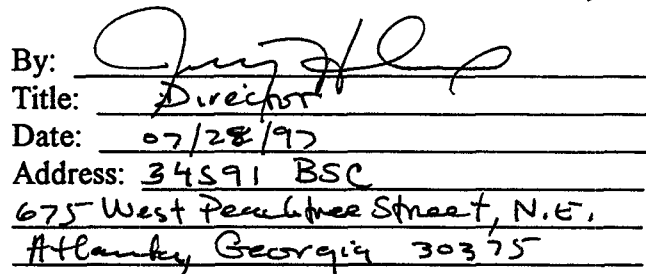 By:
Title: Director
Date: 07/28/97
Address: 34S91 BSC
675 West Peachtree Street, N.E.
Atlanta, Georgia 30375